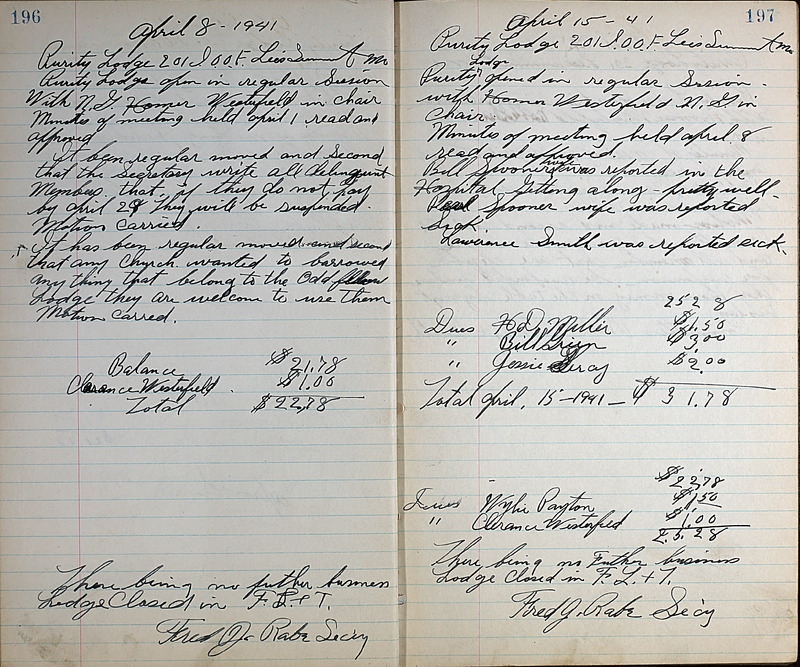 196
April 8 - 1941
Purity Lodge 201 I.O.O.F. Lees Summit Mo
Purity Lodge open in regular Session
With N.G Homer Westerfield in Chair
Minutes of meeting held april 1 read and
approved
It been regular moved and Second
that the Secretary write all Delinquent
Members that if they do not pay
by april 29 they will be suspended.
Motion Carried.
It has been regular moved and second
that any Church wanted to borrowed
any thing that belong to the Odd fellow
Lodge they are welcome to use them
Motion Carred.
Balance $21.78
Clarance Westerfield. $1.00
Total $22.78
There being no futher business
Lodge Closed in F. L. + T.
Fred J. Rabe Secy
197
April 15 - 41
Purity Lodge 201 I.O.O.F. Lees Summit Mo
Purity Lodge opened in regular Session -
with Homer Westerfield N. G in
Chair
Minutes of meeting held april 8
read and approved.
Bill wife was reported in the
Hospital getting along pretty well-
Spooner wife was reported
sick.
Lawrence Smith was reported sick.
252 8
Dues H.D. Miller $1.50
" Bill Green $3.00
" Jessie $2.00
Total april, 15-1941 - $31.78
$22.78
Dues Wylie Payton $1.50
" Clerance Westerfield $1.00
25.28
There being no Futher business
Lodge Closed in F. L. + T.
Fred J. Rabe Secy